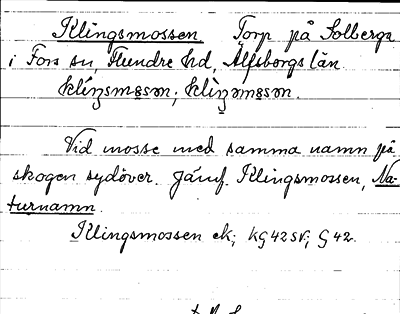 Klingsmossen Torp på Solberga
i Fors sn Flundre hd, Älfsborgs län
Vid mosse med samma namn på
skogen sydöver. Jämf. Klingsmossen, Na-
turnamn.
Klingsmossen ek; kG42SV; G42.